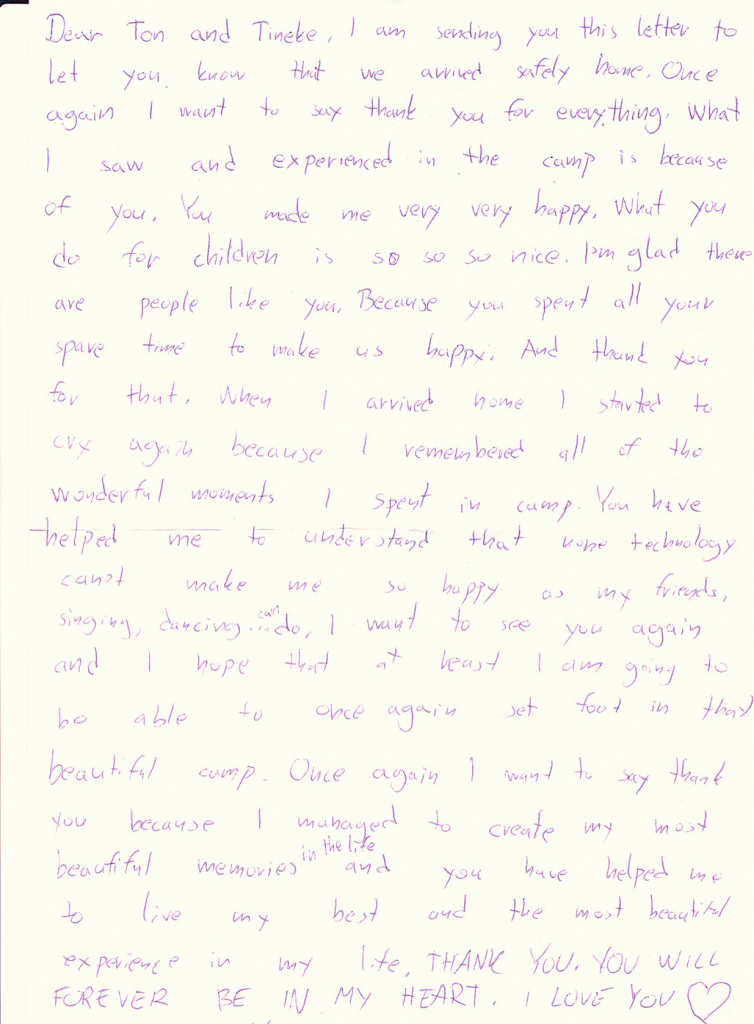 Dear Ton and Tineke, I am sending you this letter to
let you know that we arrived safely home. Once
again I want to say thank you for everything. What
I saw and experienced in the camp is because
of you. You made me very very happy. What you
do for children is so so so nice. I'm glad there
are people like you. Because you spent all your
spare time to make us happy. And thank you
for that. When I arrived home I started to
cry again because I remembered all of the
wonderful moments I spent in camp. You have
helped me to understand that none technology
can't make me so happy as my friends,
singing, dancing... can do, I want to see you again
and I hope that at least I am going to
be able to once again set foot in that
beautiful camp. Once again I want to say thank
you because I managed to create my most
beautiful memories in the life and you have helped me
to live my best and the most beautiful
experience in my life, THANK YOU. YOU WILL
FOREVER BE IN MY HEART. I LOVE YOU ♡